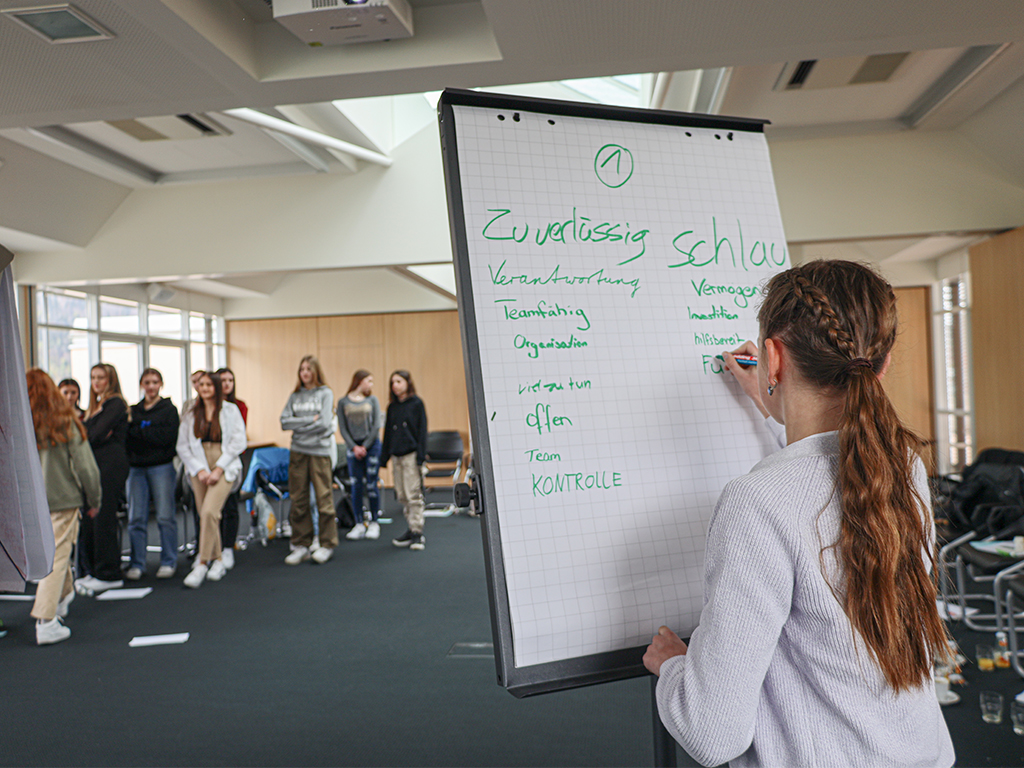 1
Zuverlässig
Verantwortung
Teamfähig
Organisation
viel zu tun
offen
Team
KONTROLLE
schlau
Vermögen
Investition
hilfsbereit
Fü